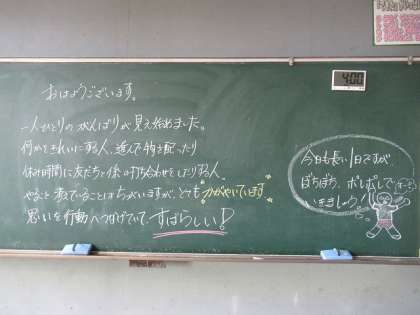 おはようございます。
一人ひとりのがんばりが見え始めました。
何かときれいにする人、進んで物を配ったり
休み時間に友だちと係の打ち合わせをしたりする人。
やること考えていることはちがいますが、とても"かがやいています。
思いを行動へつなげていて、すばらしい!
4:00
今日も長い1日ですが、
ぼちぼち、ポレポレで
いきましょう!